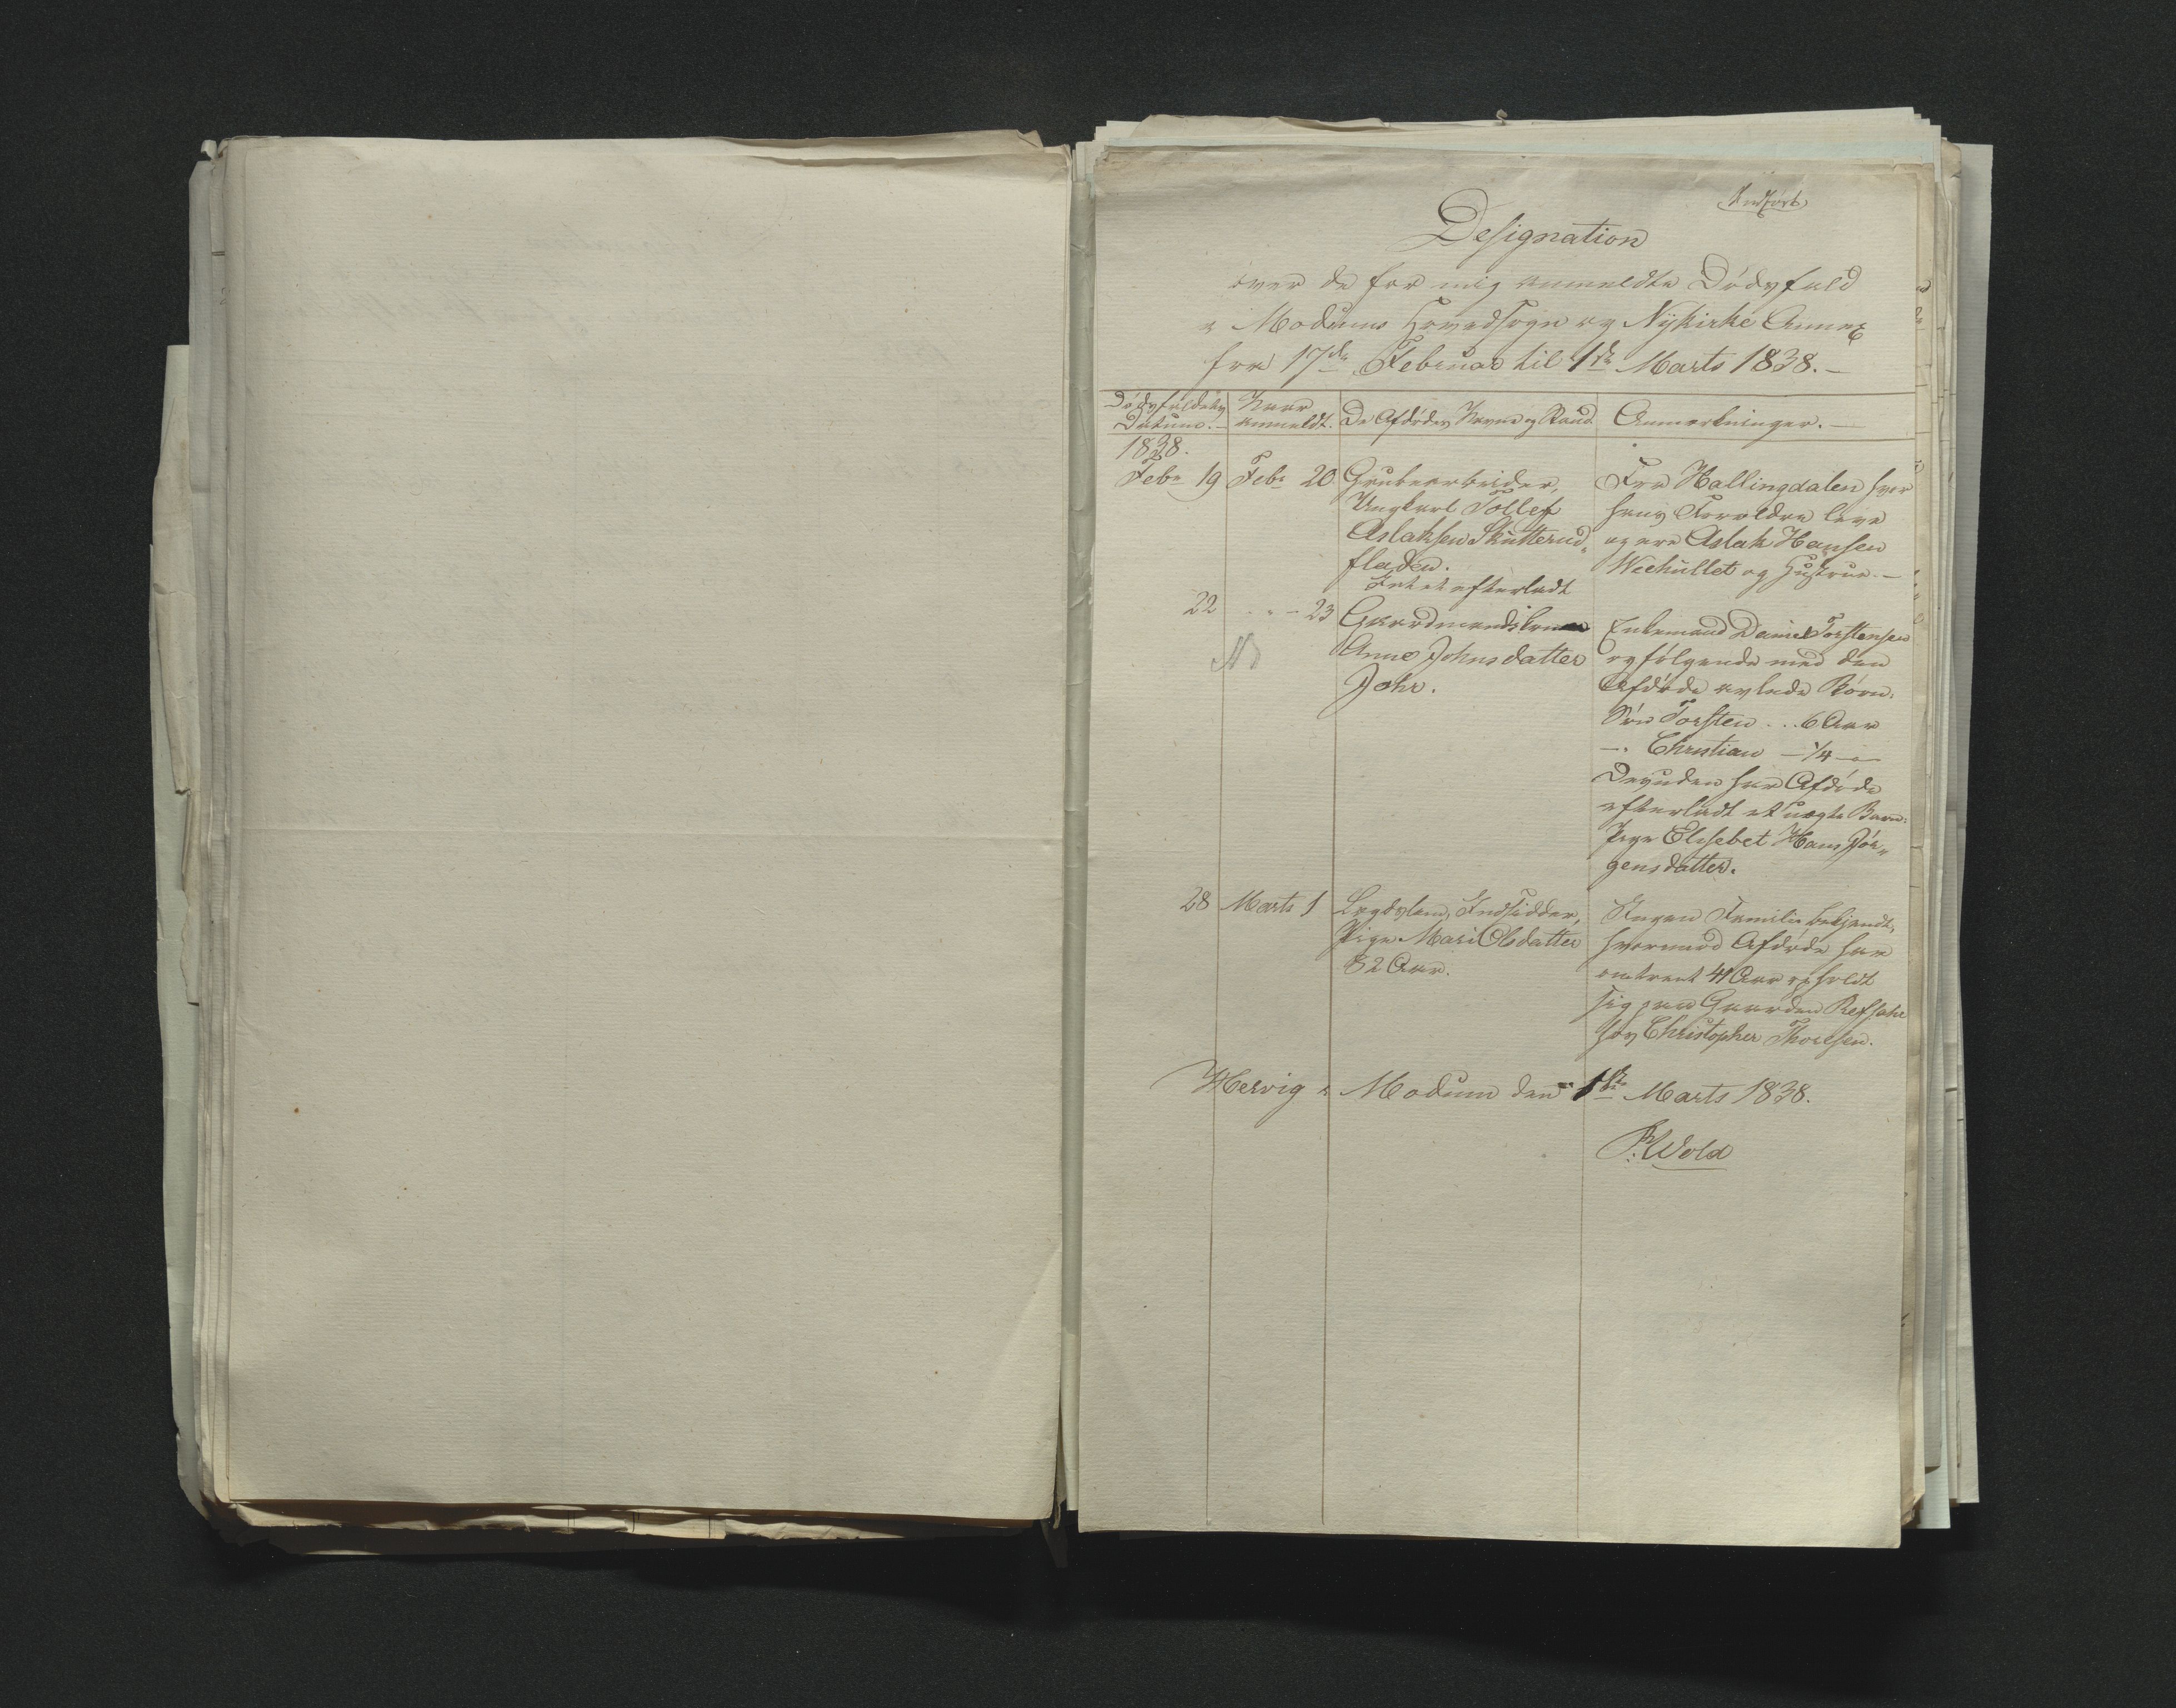 Indført
Designation
over de for mig anmeldte Dødsfald
i Modums Hovedsogn og Nykirke Annex
fra 17de Februar til 1ste Marts 1838.
Dødsfaldets Datum.
Naar anmeldt.
De Afdødes Navne og Stand
Anmærkninger.
1838.
Febr 19
Febr 20
Grubearbeider,
Ungkarl Tollef
Aslaksen Skutterud,,
fladen.
Intet efterladt
Fra Hallingdalen hvor
hans Forældre leve
og ere Aslak Hansen
og Hustrue.
22
" - 23
Gaardmandskone
Anne Johnsdatter
NB
Enkemand Daniel Torstensen
og følgende med den
Afdøde avlede Børn:
Søn Torsten ... 6 Aar
-" Christian - 1/4 -"-
Desuden har Afdøde
efterladt et uægte Barn:
Pige Elisebet Hans Jør,,
gensdatter.
28
Marts 1
Lægdslem, Indsidder,
Pige Mari Olsdatter
82 Aar.
Ingen Familie bekjendt,
hvorimod Afdøde har
omtrent 41 Aar opholdt
sig paa Gaarden Refsahl
hos Christopher Thoresen.
Hervig i Modum den 1ste Marts 1838.
Wold